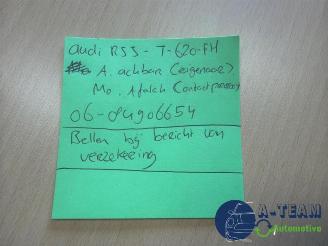 audi RS5 - T-620-FH
A. achbar (eigenaar)
Mo. Afalah Contactpersoon
06-84906654
Bellen bij bericht van
verzekering
A-TEAM
Automotive